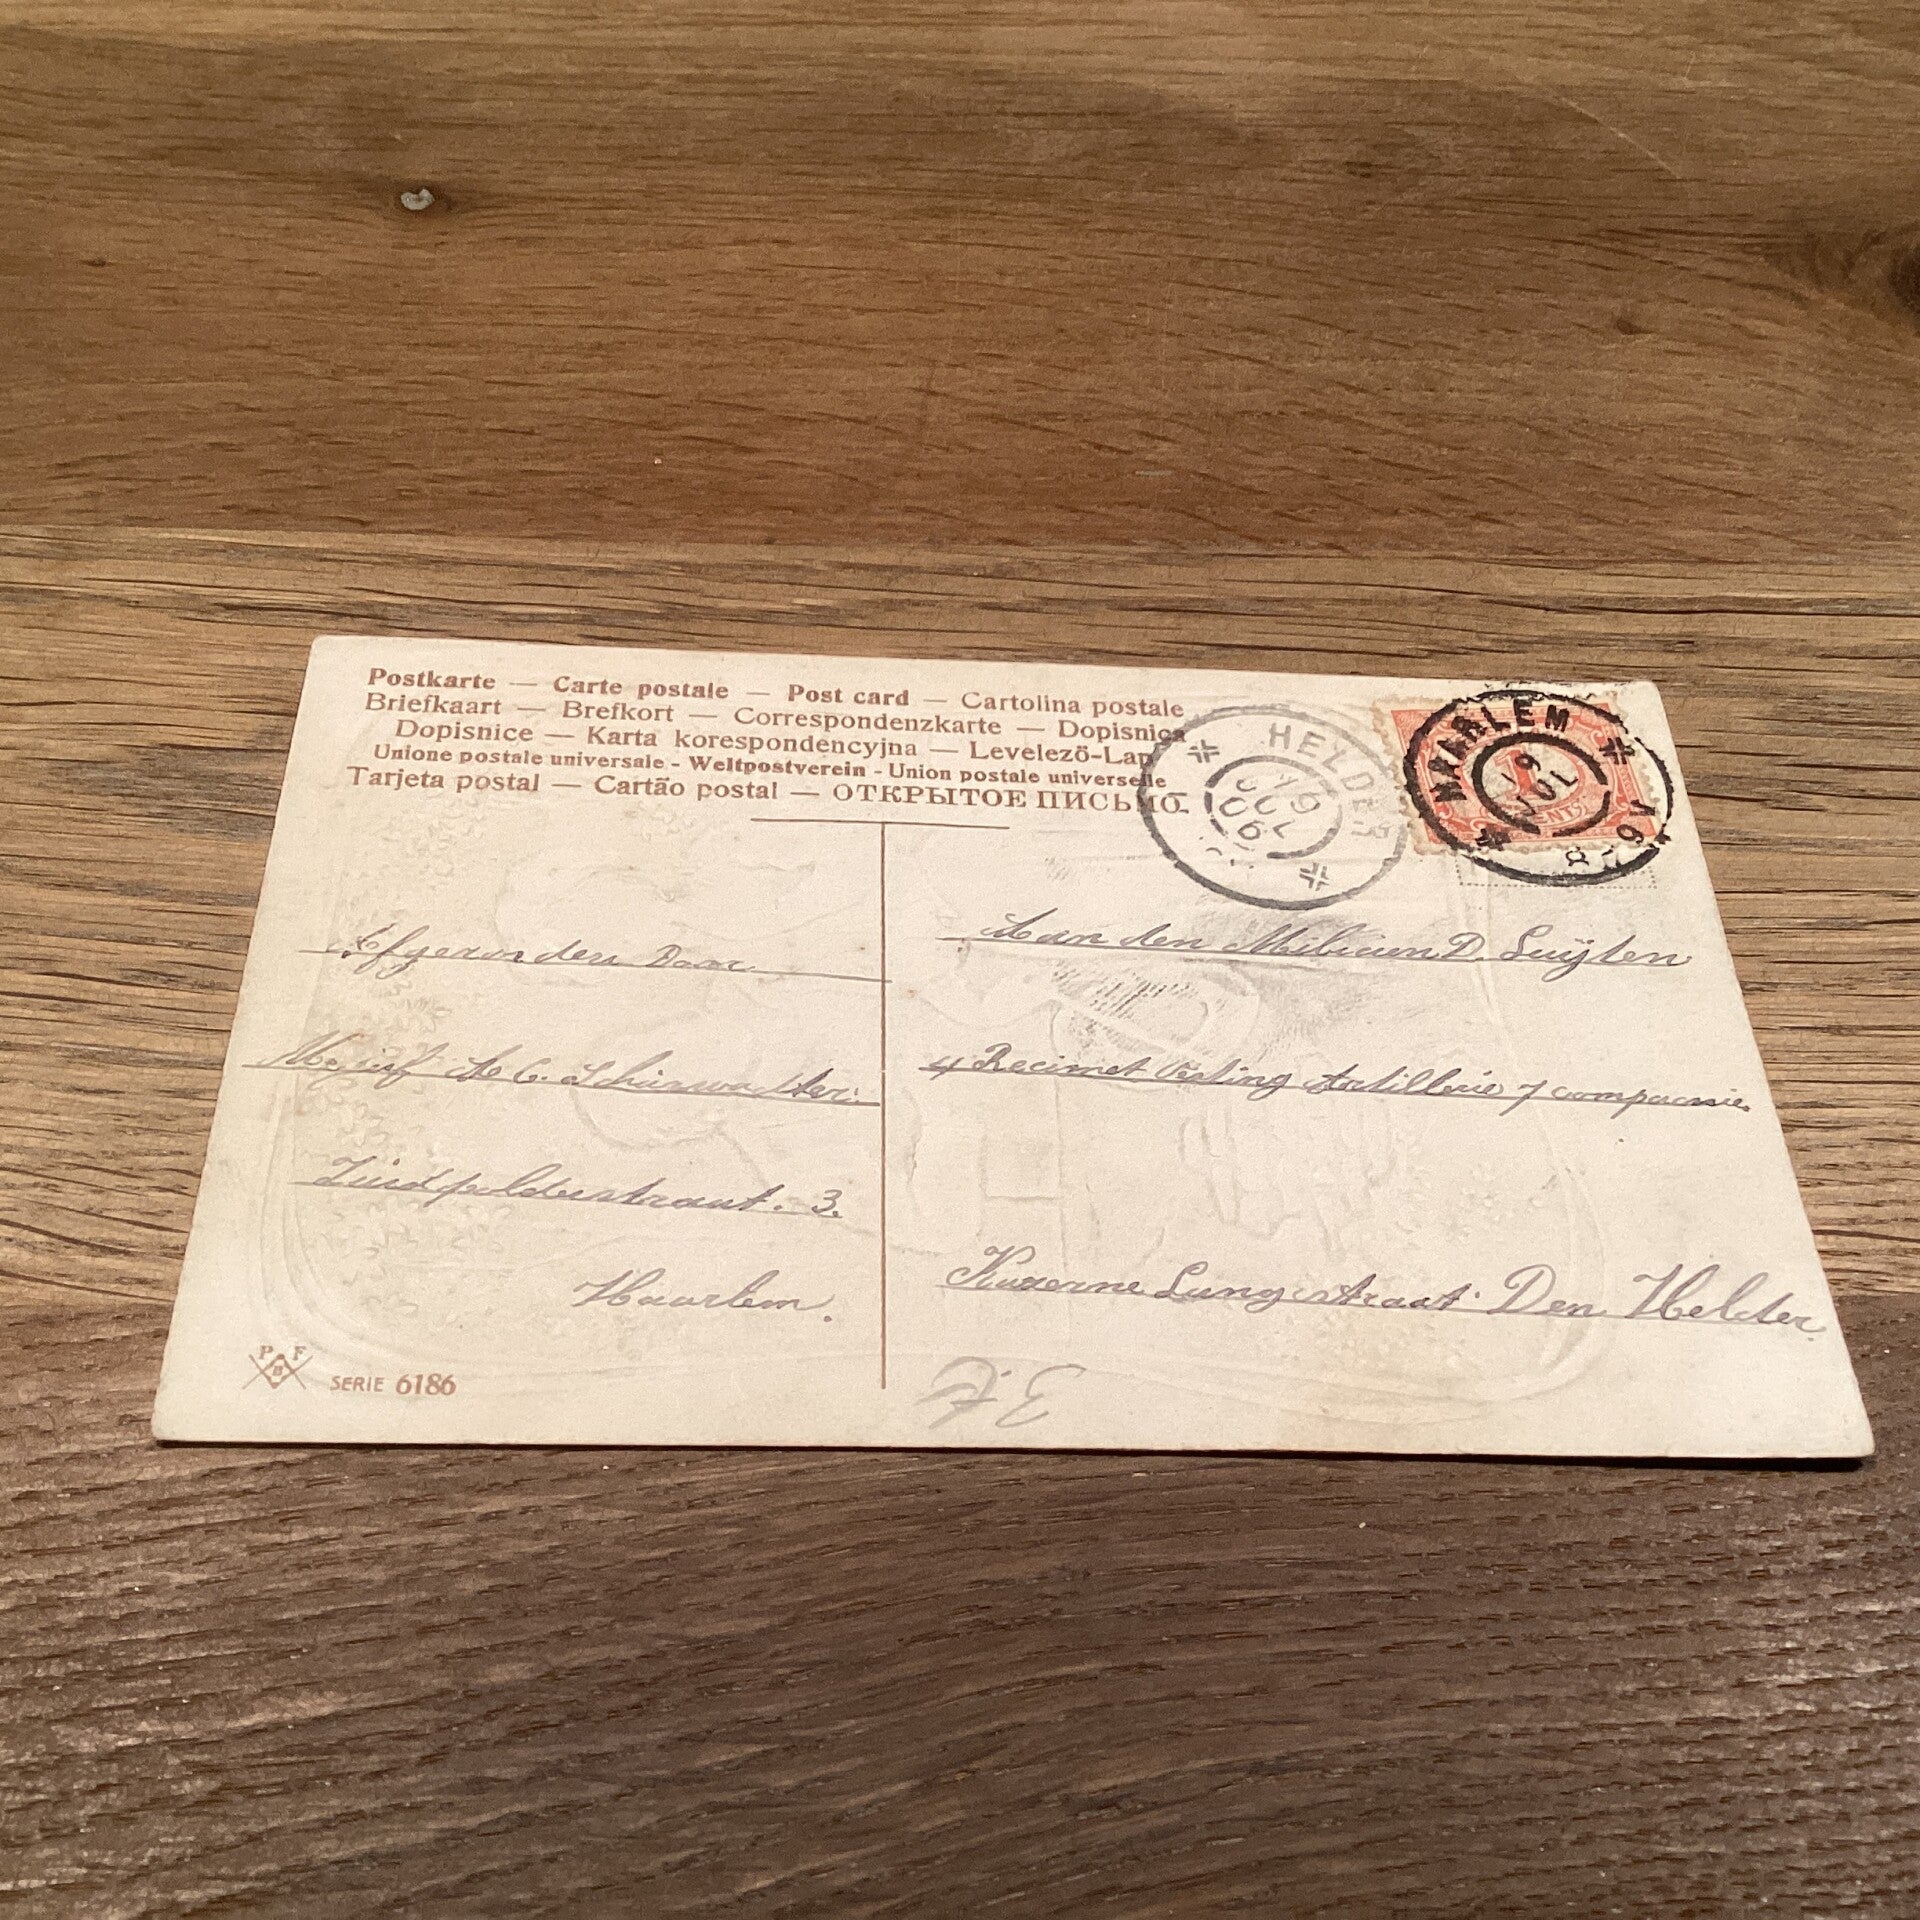 Postkarte — Carte postale — Post card — Cartolina postale
Briefkaart — Brefkort — Correspondenzkarte — Dopisnica
Dopisnice — Karta korespondencyjna — Levelező-Lap
Unione postale universale - Weltpostverein - Union postale universelle
Tarjeta postal — Cartão postal — ОТКРЫТОЕ ПИСЬМО.
HELDER
HAARLEM
19
JUL
1
CENT
Afgezonden Door
Mejuf A C.
Zuidpolderstraat. 3.
Haarlem.
Aan den Milicien D. Luijten
4 Recimet Vesting Artillerie 7 compagnie.
Kazerne Langestraat Den Helder
P F
B
SERIE 6186